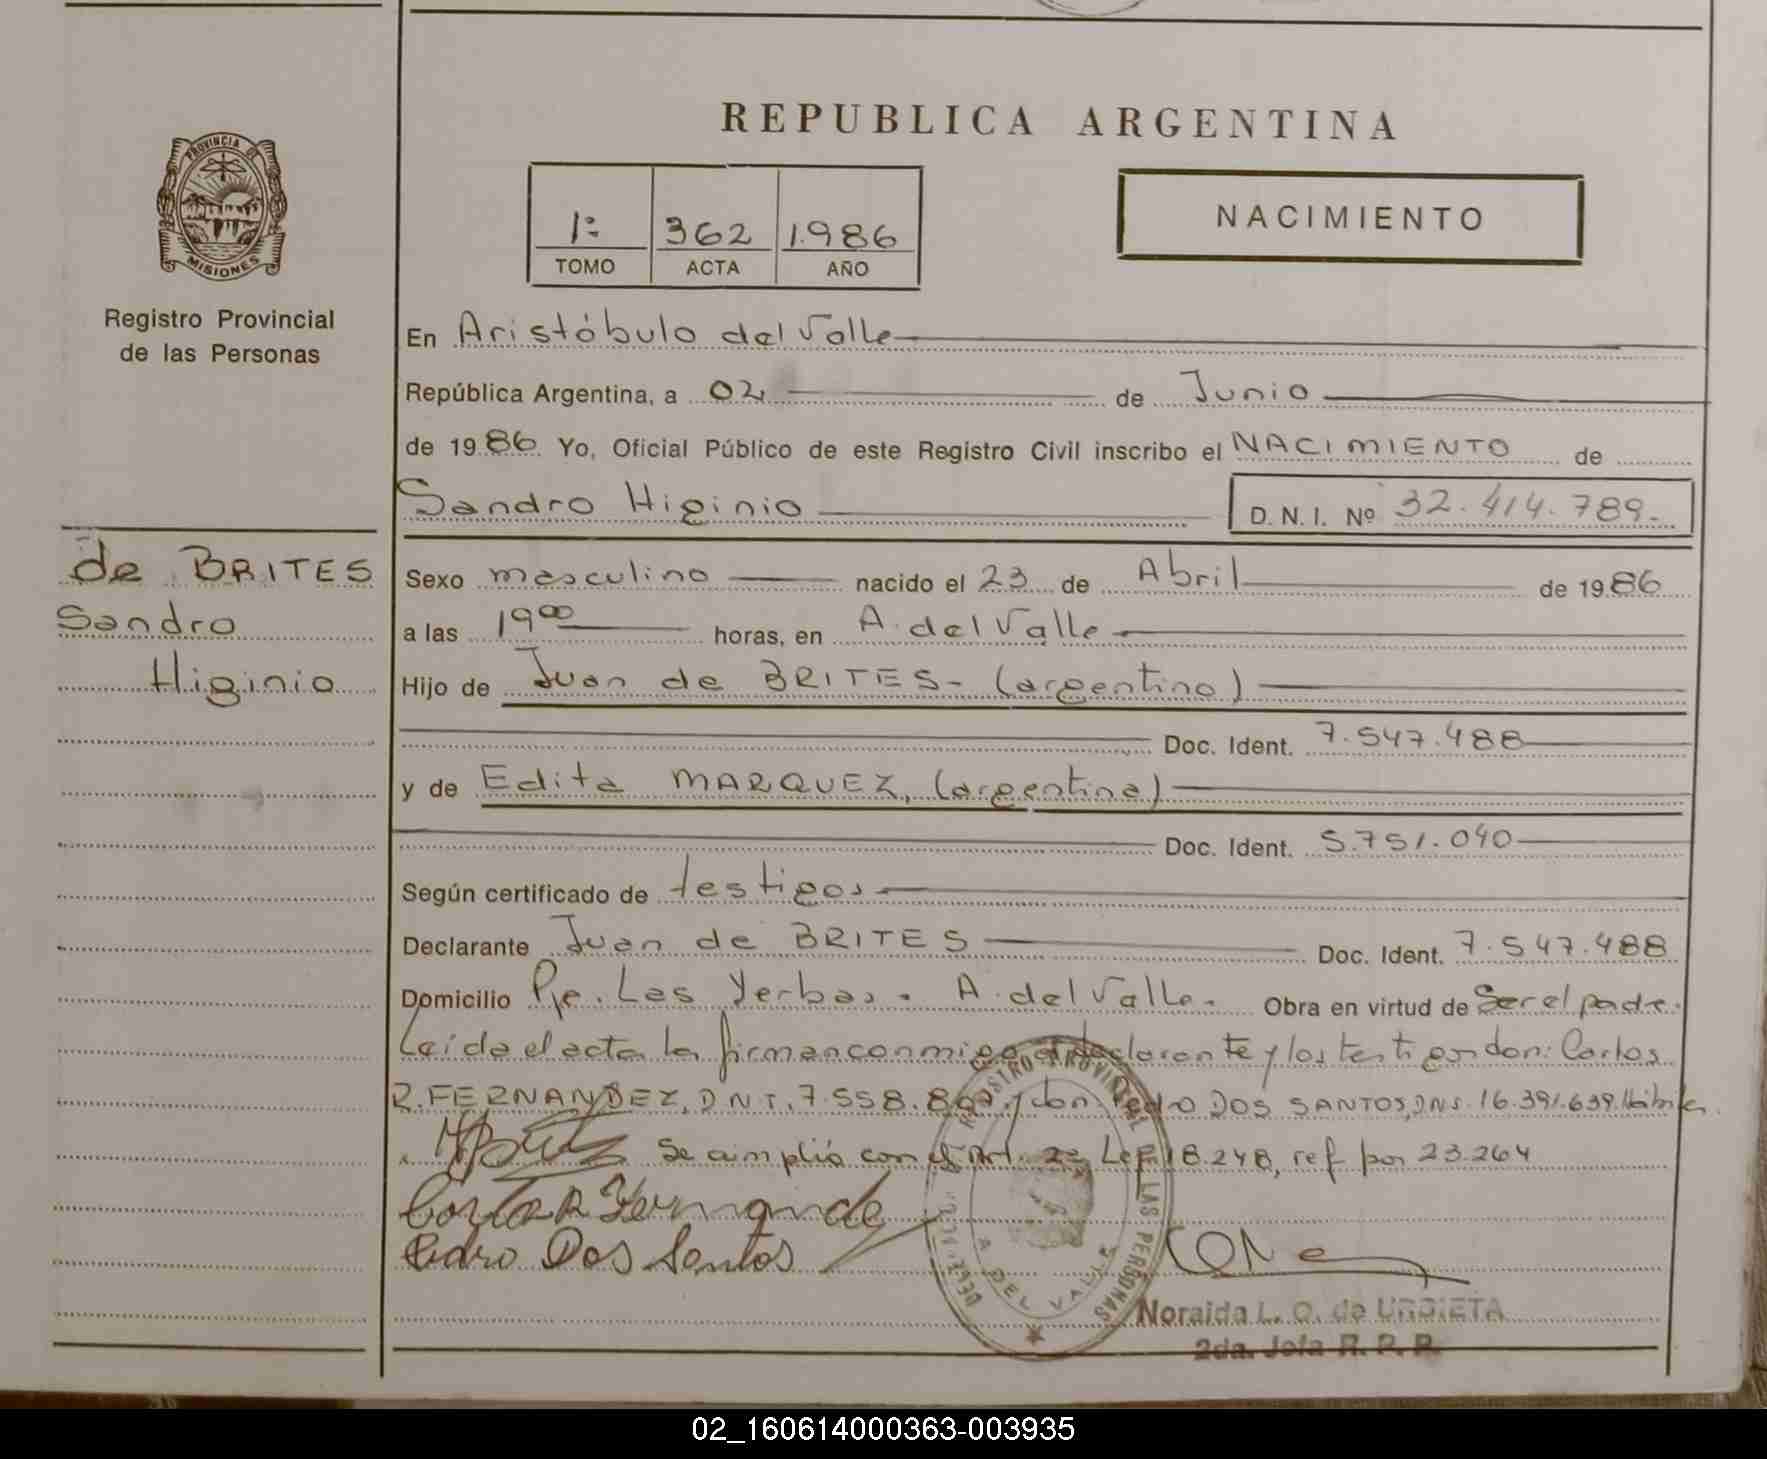 REPUBLICA ARGENTINA
PROVINCIA DE
MISIONES
Registro Provincial
de las Personas
1: 362 1.986
TOMO ACTA AÑO
NACIMIENTO
En Aristóbulo del Valle
República Argentina, a 02 de Junio
de 1986 Yo, Oficial Público de este Registro Civil inscribo el NACIMIENTO de
Sandro Higinio D. N. I. Nº 32.414.789.-
de BRITES
Sandro
Higinio
Sexo masculino nacido el 23 de Abril de 1986
a las 19 00 horas, en A. del Valle
Hijo de Juan de BRITES- (argentino)
Doc. Ident. 7.547.488
y de Edita MARQUEZ, (argentina)
Doc. Ident. 5.751.040
Según certificado de testigos
Declarante Juan de BRITES Doc. Ident. 7.547.488
Domicilio Pje. Las Yerbas. A. del Valle. Obra en virtud de Ser el padre.
Leida el acta la firman conmigo el declarante y los testigos don: Carlos
R. FERNANDEZ, DNI. 7.558. y don Pedro DOS SANTOS, DNI. 16.391.639
Se cumplió con el Art. 2º Ley 18.248, ref por 23.264
Carlos R Fernande
Pedro Dos Santos
REGISTRO PROVINCIAL DE LAS PERSONAS
A. DEL VALLE
Noraida L. O. de URBIETA
2da. Jefa R. P. P.
02_160614000363-003935